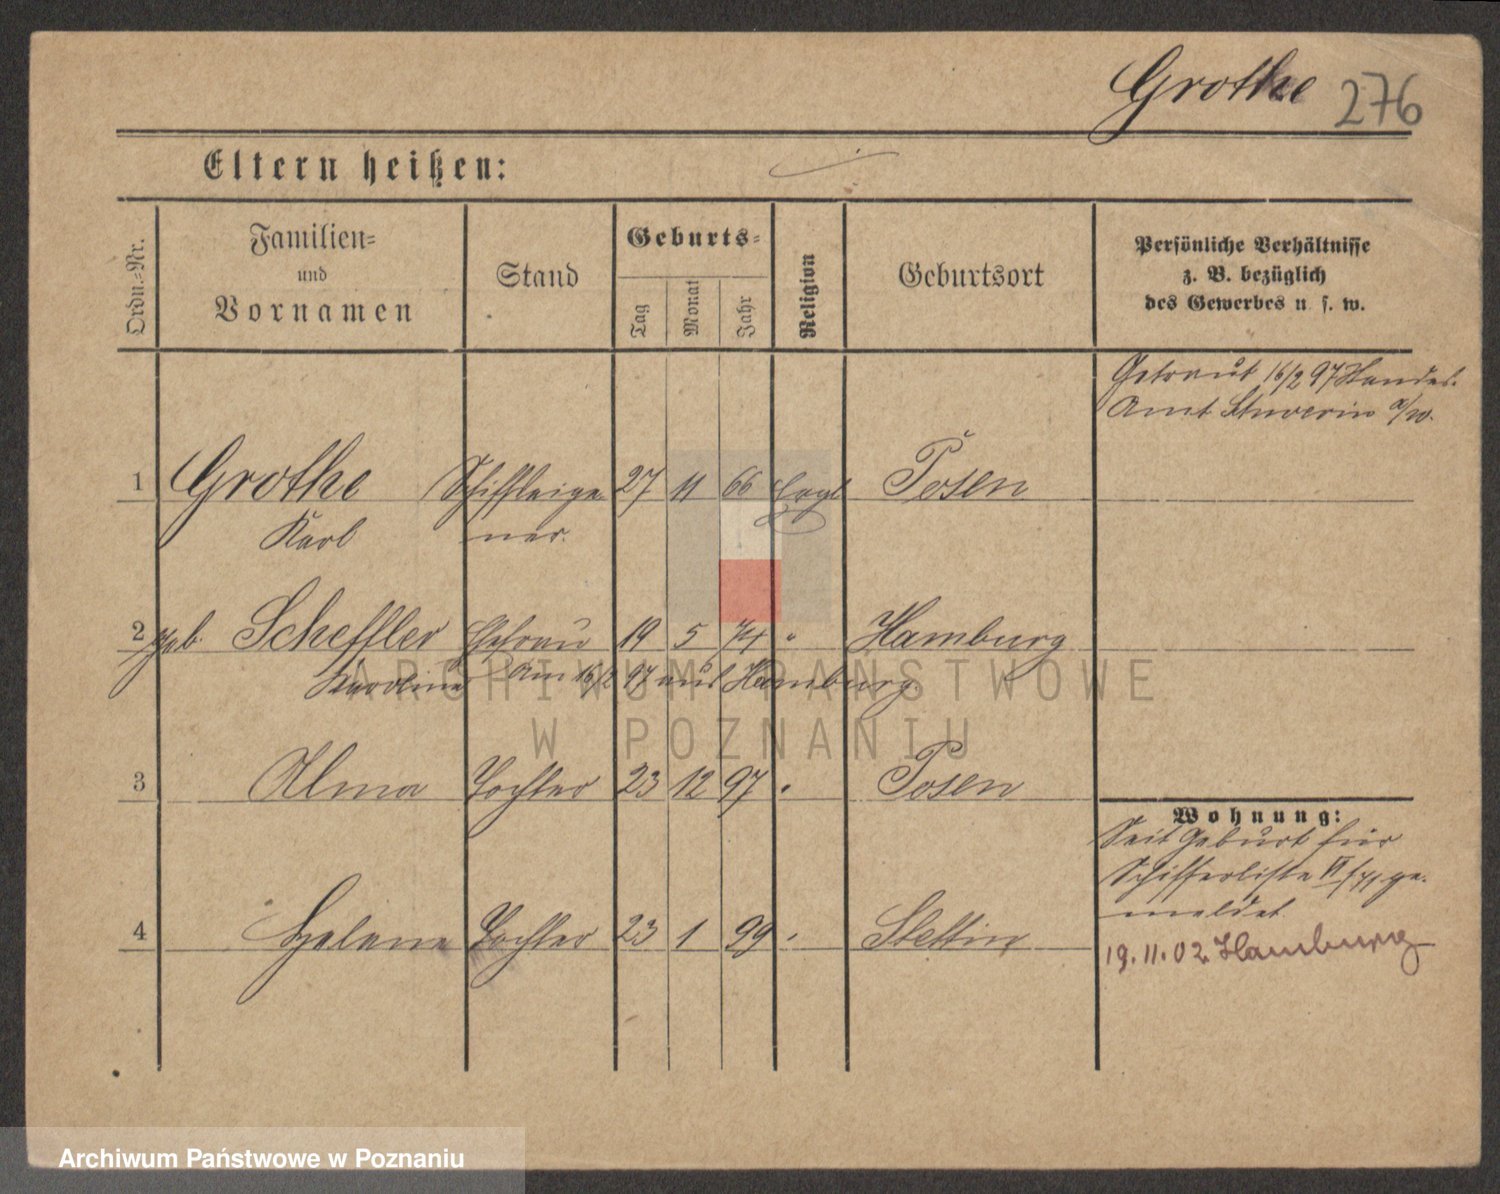 Grothe 276
Eltern heißen:
Ordn.-Nr. Familien- und Vornamen Stand Geburts- Tag Monat Jahr Religion Geburtsort Persönliche Verhältnisse z. B. bezüglich des Gewerbes u. s. w.
Getraut 16/2 97 Standes-
Amt Schwerin a/W.
1 Grothe Schiffseige- 27 11 66 Evgl Posen
Karl ner.
2 geb. Scheffler Ehefrau 19 5 74 " Hamburg
Karoline Am 16/2 97 aus Hamburg
3 Alma Tochter 23 12 97 " Posen
Wohnung:
Seit Geburt für
Schifferliste VI ge-
meldet
4 Helene Tochter 23 1 99 " Stettin
19.11.02 Hamburg
ARCHIWUM PAŃSTWOWE
W POZNANIU
Archiwum Państwowe w Poznaniu